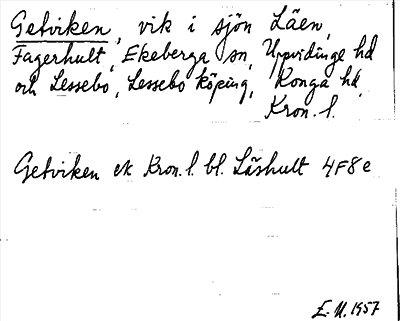 Getviken, vik i sjön Läen,
Fagerhult, Ekeberga sn, Uppvidinge hd
och Lessebo, Lessebo köping, Konga hd,
Kron. l.
Getviken ek Kron. l. bl. Läshult 4F8e
E.U. 1957